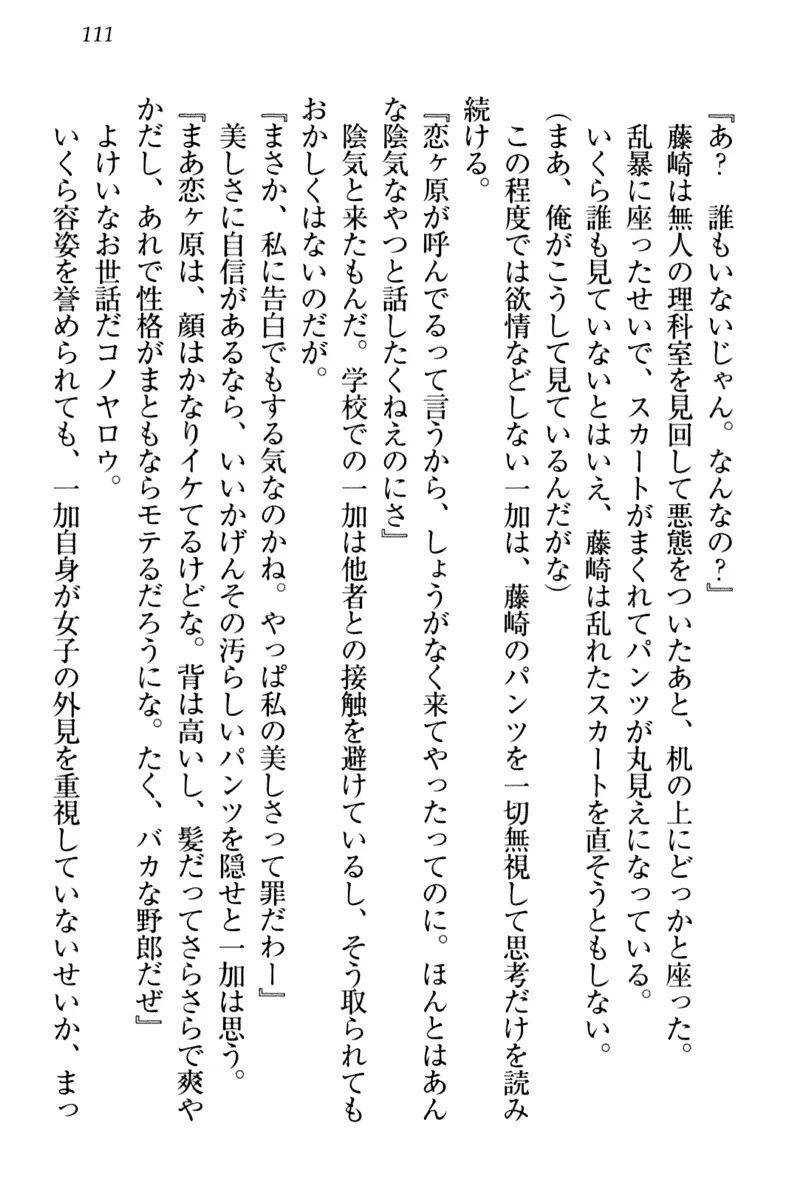 111
『あ？　誰もいないじゃん。なんなの？』
　藤崎は無人の理科室を見回して悪態をついたあと、机の上にどっかと座った。
　乱暴に座ったせいで、スカートがまくれてパンツが丸見えになっている。
　いくら誰も見ていないとはいえ、藤崎は乱れたスカートを直そうともしない。
（まあ、俺がこうして見ているんだがな）
　この程度では欲情などしない一加は、藤崎のパンツを一切無視して思考だけを読み
続ける。
『恋ヶ原が呼んでるって言うから、しょうがなく来てやったってのに。ほんとはあん
な陰気なやつと話したくねえのにさ』
　陰気と来たもんだ。学校での一加は他者との接触を避けているし、そう取られても
おかしくはないのだが。
『まさか、私に告白でもする気なのかね。やっぱ私の美しさって罪だわー』
　美しさに自信があるなら、いいかげんその汚らしいパンツを隠せと一加は思う。
『まあ恋ヶ原は、顔はかなりイケてるけどな。背は高いし、髪だってさらさらで爽や
かだし、あれで性格がまともならモテるだろうにな。たく、バカな野郎だぜ』
　よけいなお世話だコノヤロウ。
　いくら容姿を誉められても、一加自身が女子の外見を重視していないせいか、まっ